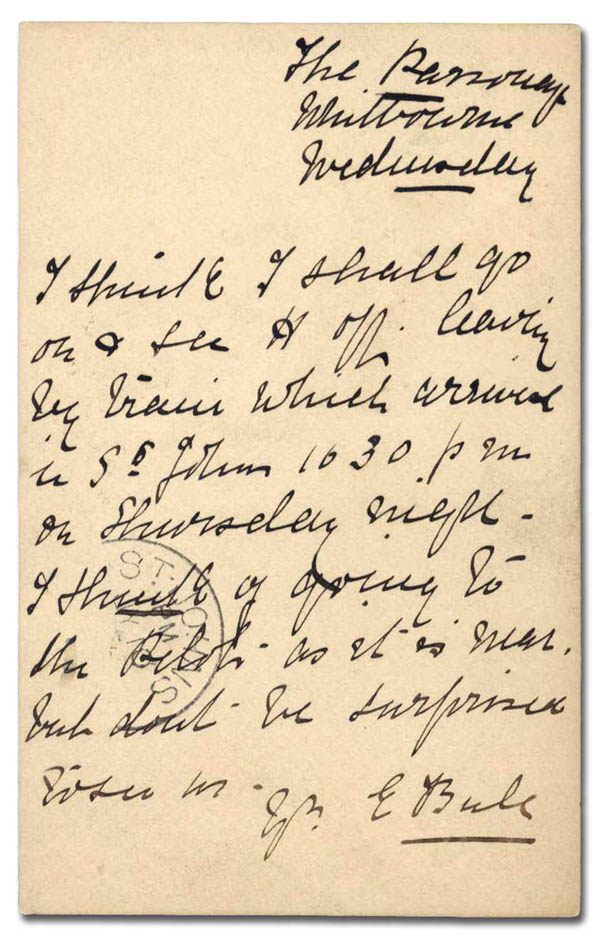 The Parsonage
Whitbourne
Wednesday
I think I shall go
on & see H off. leaving
by train which arrives
in St Johns 10 30 pm
on Thursday night -
I think of going to
the as it is near.
but dont be surprised
to see us -
E Bull
ST. JOHN'S